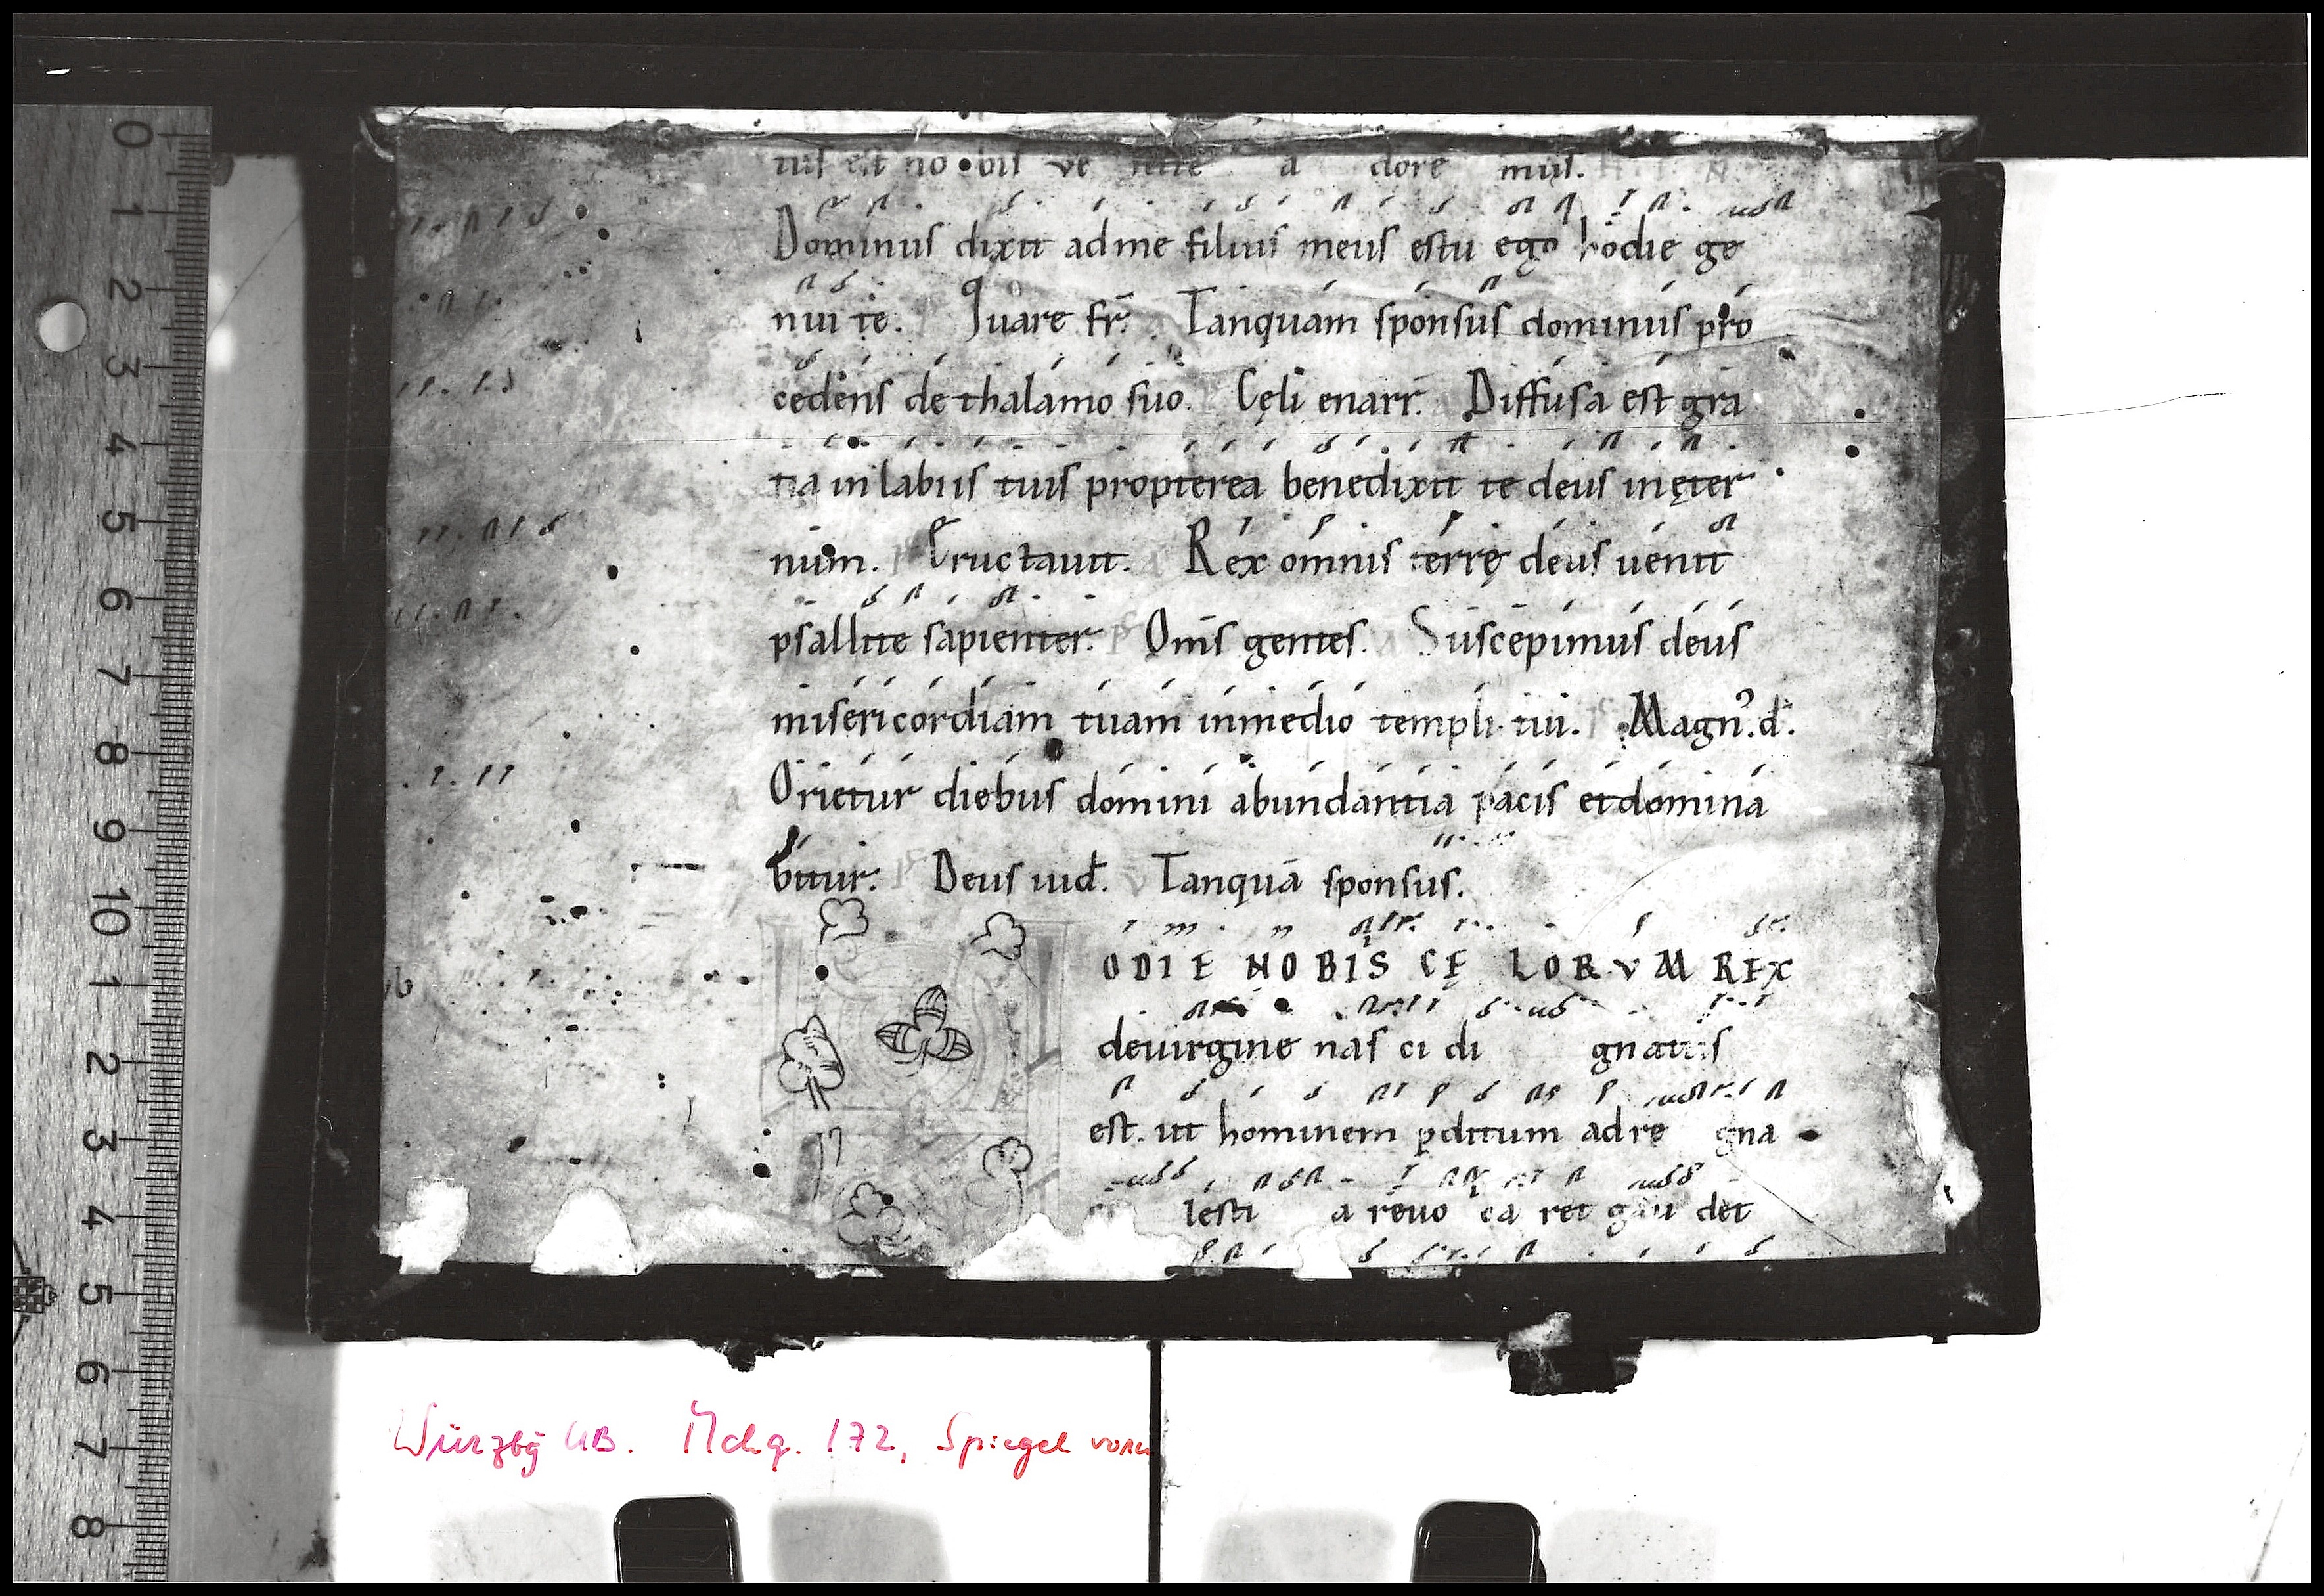 tus est nobis ve nite a dore mus.
Dominus dixit ad me filius meus es tu ego hodie ge
nui te. Quare fr̄. Tanquam sponsus dominus pro
cedens de thalamo suo. Cęli enarr. Diffusa est gra
tia in labiis tuis propterea benedixit te deus in ęter
num. Eructauit. Rex omnis terrę deus uenit
psallite sapienter. Om̄s gentes. Suscepimus deus
misericordiam tuam in medio templi tui. Magn᾽. d̄.
Orietur diebus domini abundantia pacis et domina
bitur. Deus iud̄. Tanquā sponsus.
ODIE NOBIS CĘ LORVM REX
de uirgine nas ci di gnatus
est. ut hominem ꝑditum ad re gna
lesti a reuo ca ret gau det
0 1 2 3 4 5 6 7 8 9 10 1 2 3 4 5 6 7 8
Würzbg UB. M.ch.q. 172, Spiegel vorn